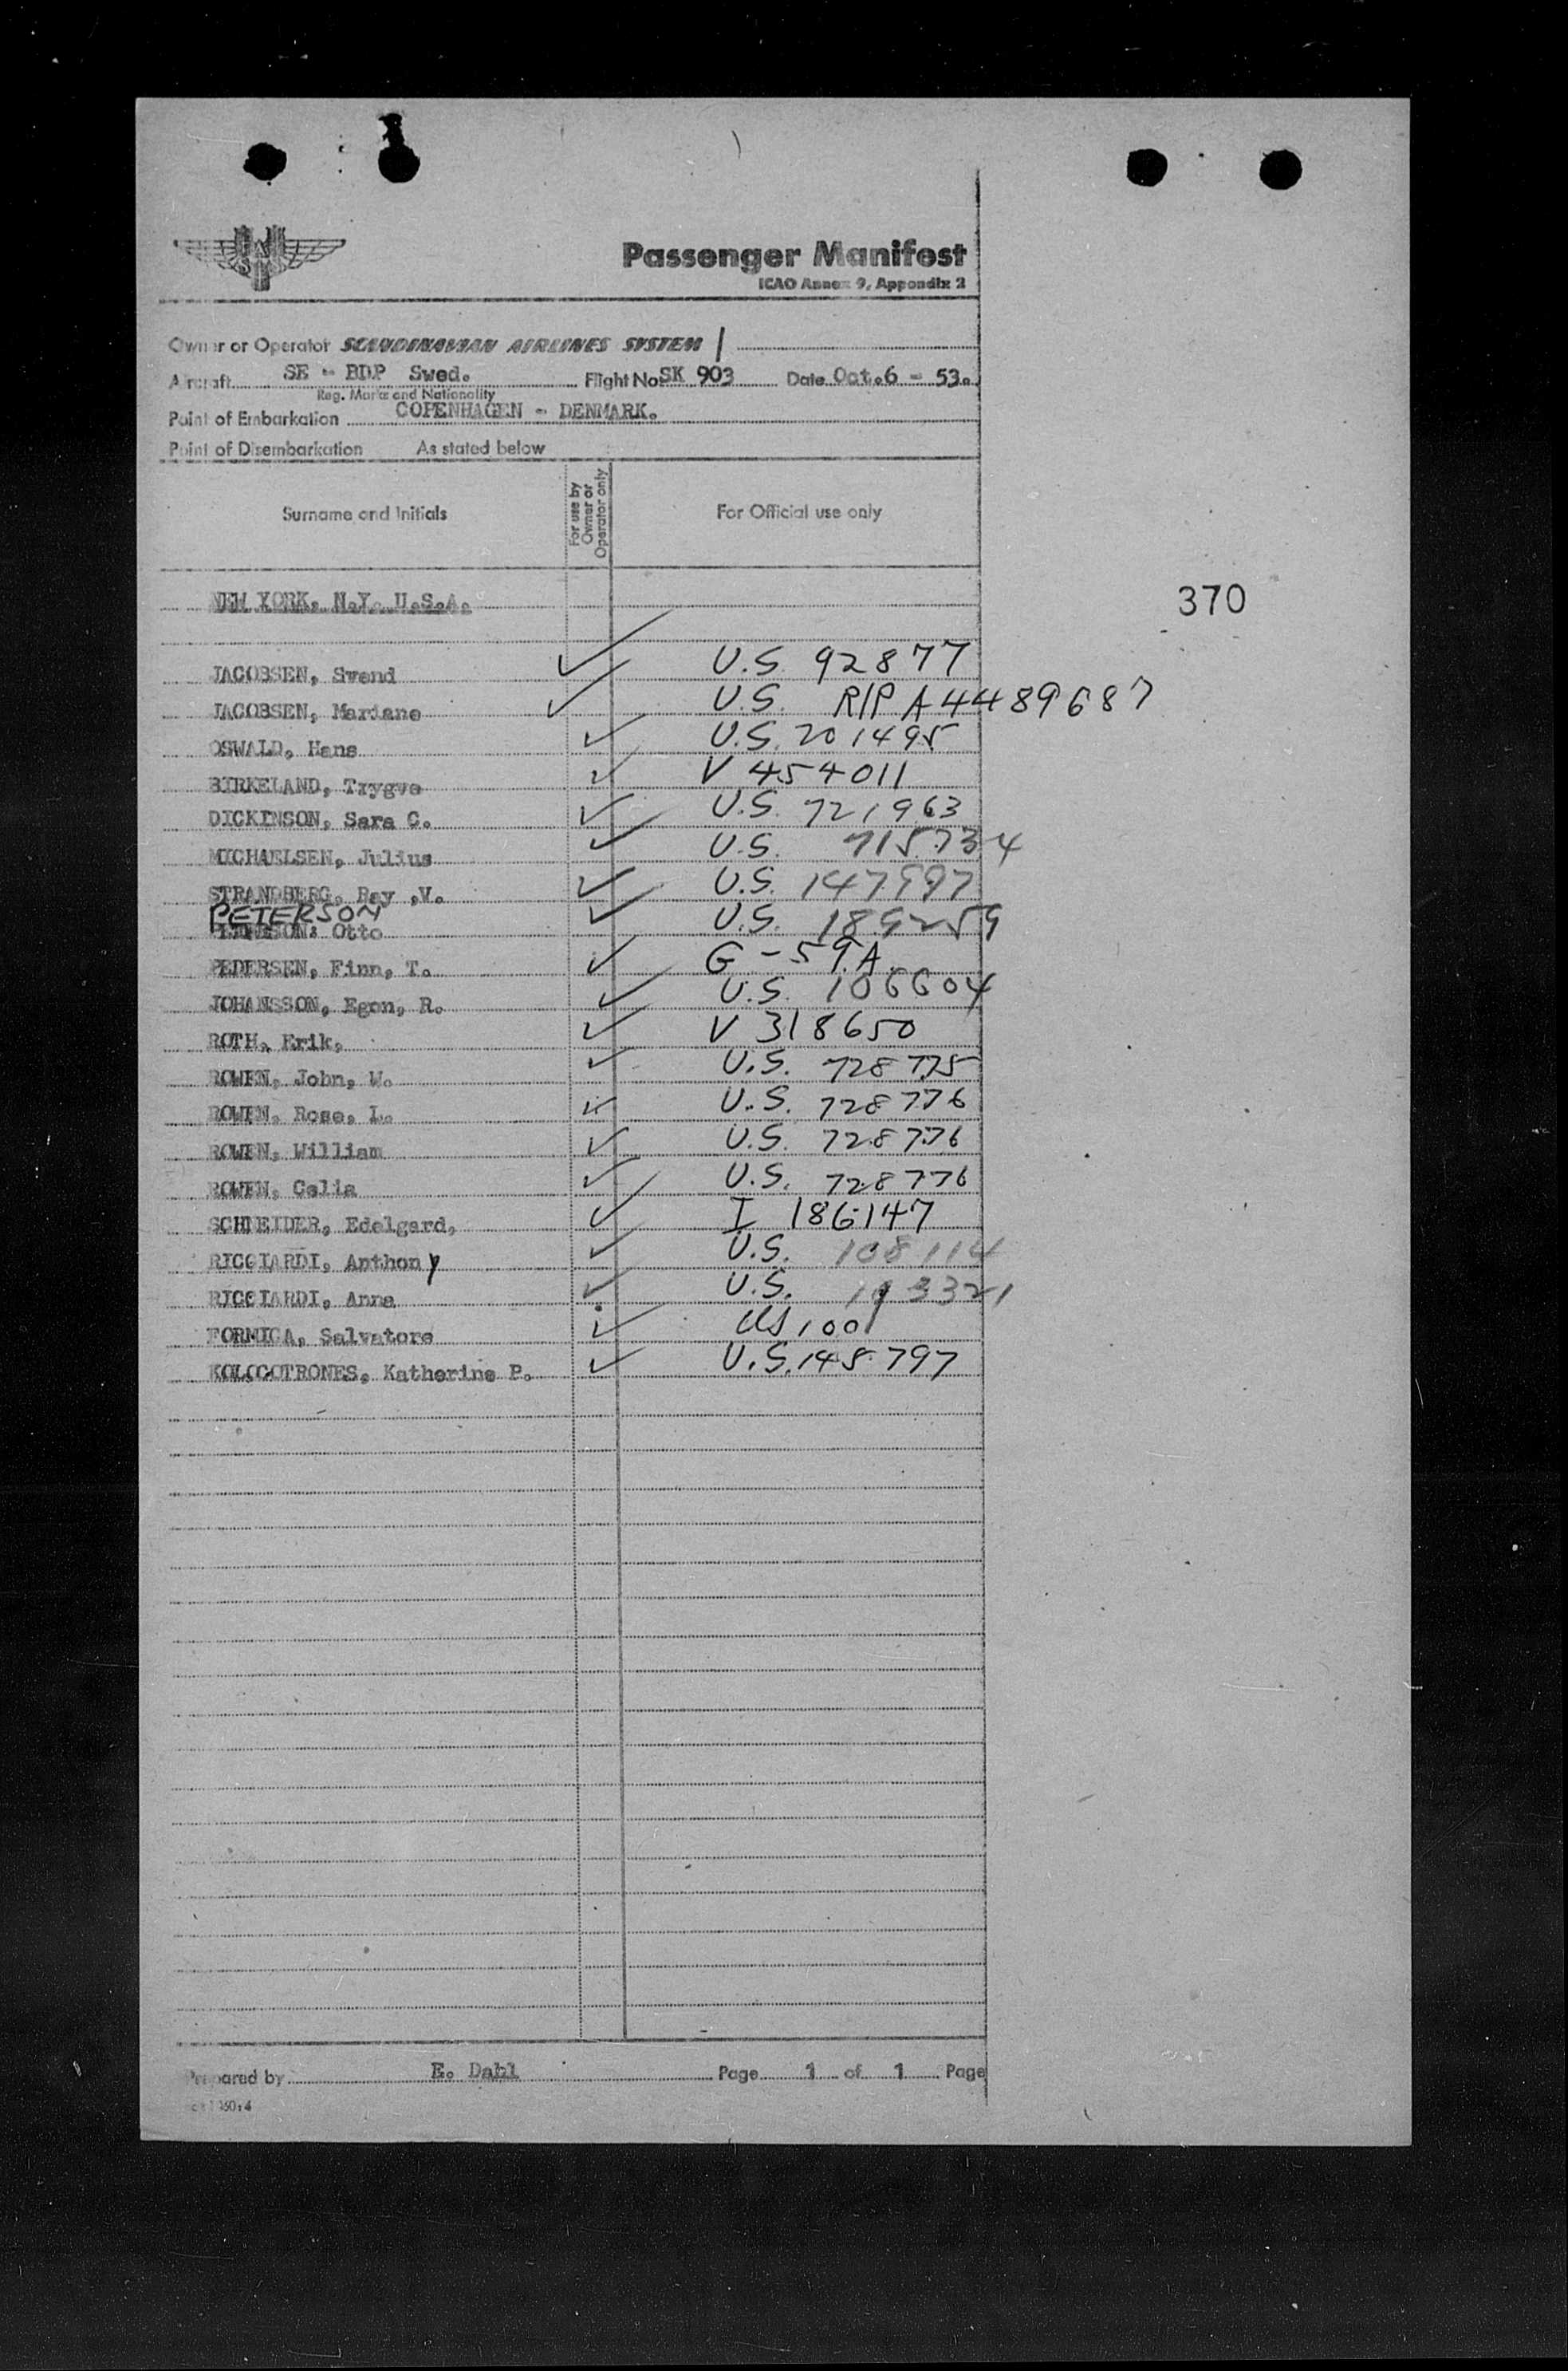 SAS
Passenger Manifest
ICAO Annex 9, Appendix 2
Owner or Operator SCANDINAVIAN AIRLINES SYSTEM
Aircraft SE - BDP Swed. Flight No SK 903 Date Oct.6 - 53.
Reg. Marks and Nationality
Point of Embarkation COPENHAGEN - DENMARK.
Point of Disembarkation As stated below
Surname and Initials For use by Owner or Operator only For Official use only
NEW YORK, N.Y. U.S.A. 370
JACOBSEN, Svend ✓ U.S. 92877
JACOBSEN, Mariane ✓ U.S. R/P A4489687
OSWALD, Hans ✓ U.S. 201495
BIRKELAND, Trygve ✓ V 454011
DICKINSON, Sara C. ✓ U.S. 721963
MICHAELSEN, Julius ✓ U.S. 715734
STRANDBERG, Ray ,V. ✓ U.S. 147997
PETERSON
Otto ✓ U.S. 189259
PEDERSEN, Finn, T. ✓ G-59A
JOHANSSON, Egon, R. ✓ U.S. 106604
ROTH, Erik, ✓ V 318650
ROWEN, John, W. ✓ U.S. 728775
ROWEN, Rose, L. ✓ U.S. 728776
ROWEN, William ✓ U.S. 728776
ROWEN, Celia ✓ U.S. 728776
SCHNEIDER, Edelgard, ✓ I 186147
RICCIARDI, Anthony ✓ U.S. 108114
RICCIARDI, Anna ✓ U.S.
FORMICA, Salvatore ✓ US 1001
KOLOCOTRONES, Katherine P. ✓ U.S. 148797
Prepared by E. Dahl Page 1 of 1 Page